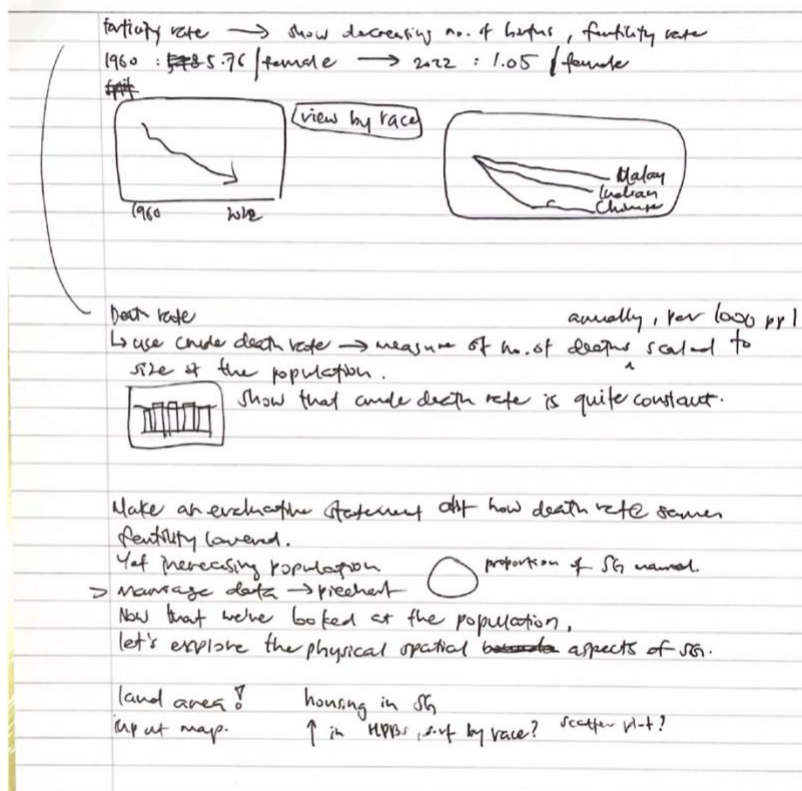 fertility rate → show decreasing no. of births, fertility rate
1960 : 5.76 / female → 2022 : 1.05 / female
view by race
Malay
Indian
Chinese
1960 2022
Death rate
annually, per 1000 ppl
↳ use crude death rate → measure of no. of deaths ^ scaled to
size of the population.
show that crude death rate is quite constant.
Make an evaluative statement abt how death rate same
fertility lowered.
Yet increasing population
proportion of SG married.
> marriage data → piechart
Now that we've looked at the population,
let's explore the physical spatial aspects of SG.
land area! housing in SG
map. ↑ in HDBs, by race? scatter plot?